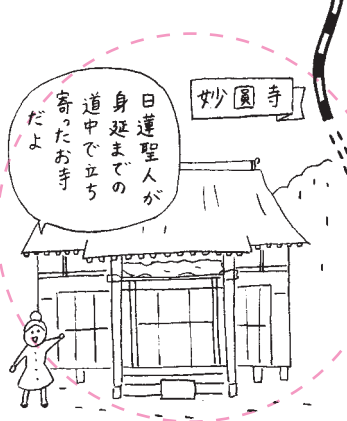 妙圓寺
日蓮聖人が
身延までの
道中で立ち
寄ったお寺
だよ